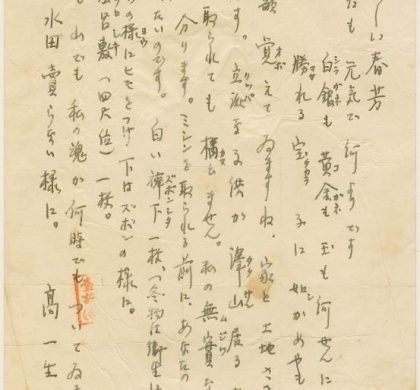 しい春芳
にも 元気で何よりです
白銀も 黄金も 玉も 何せんに
勝れる宝 子に 如かめやも
歌 覚えてゐますね。 家と土地さ
す。立派な子供が 澤山 居るか
取られても 構ひません。私の無實な
分ります。ミシンを取られる前に、あなたの
たいのです。 白い袴下一枚、(冬物は衛生
の様にヒモをつけ 下はズボンの様に。
風呂敷(四尺位)一枚。
も 山でも 私の魂が 何時でもついてゐま
水田 賣らない様に。
高一生